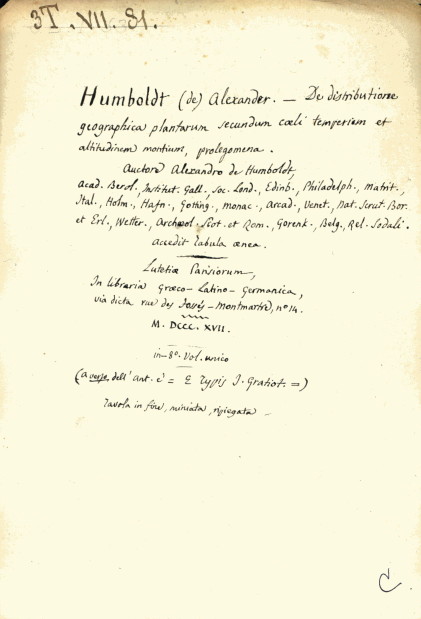 3T. VII. 81.
Humboldt (de) Alexander. — De distributione
geographica plantarum secundum cœli temperiem et
altitudinem montium, prolegomena.
Auctore Alexandro de Humboldt,
Acad. Berol., Institut. Gall. Soc. Lond., Edinb., Philadelph., Matrit.,
Ital., Holm., Hafn., Gotting., Monac., Arcad., Venet., Nat. Scrut. Bor.
et Erl., Wetter., Archæol. Scot. et Rom., Gorenk., Belg., Rel. Sodali.
accedit tabula ænea.
Lutetiæ Parisiorum,
In libraria Græco-Latino-Germanica,
via dicta rue des Fossés-Montmartre, nº 14.
M. DCCC. XVII.
in-8º. Vol. unico
(a verso dell' ant. è = E Typis J. Gratiot. =)
Tavola in fine, miniata, ripiegata —
C